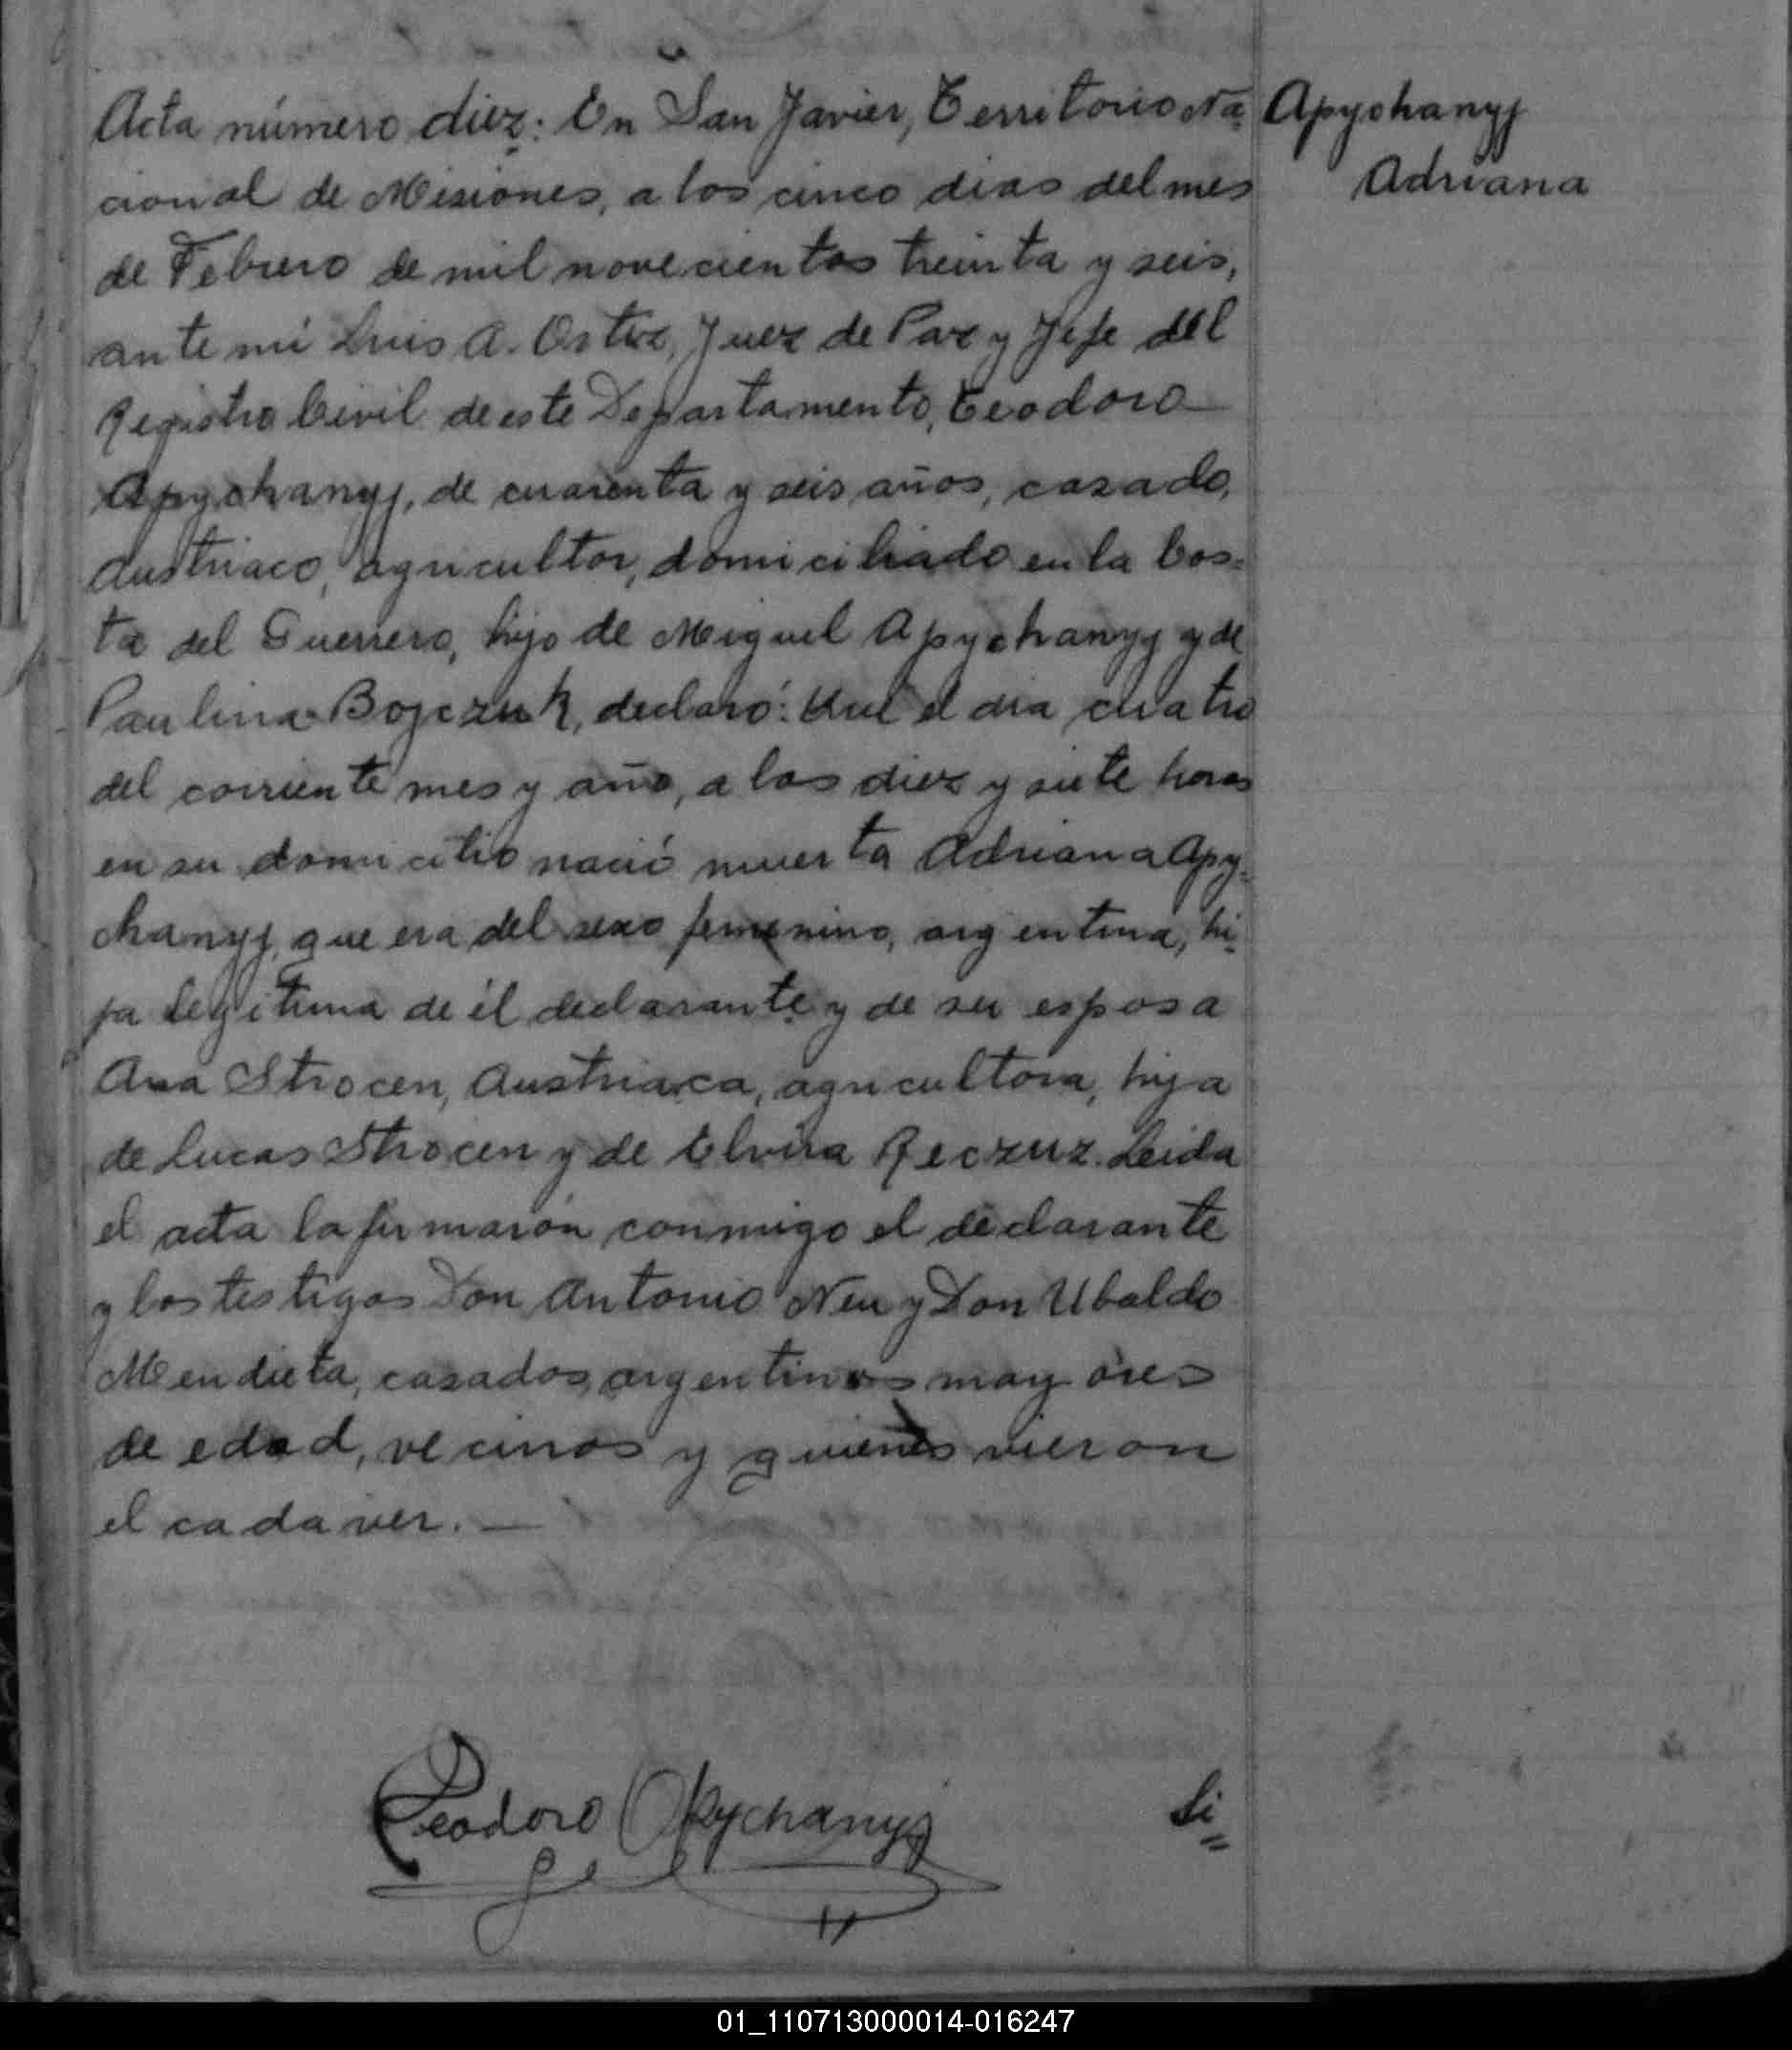 Acta número diez: En San Javier, Territorio Na=
cional de Misiones, a los cinco dias del mes
de Febrero de mil novecientos treinta y seis,
ante mi Luis A. Ortiz, Juez de Paz y Jefe del
Registro Civil de este Departamento, Teodoro
Apychanyj, de cuarenta y seis años, casado,
Austriaco, agricultor, domiciliado en la Cos=
ta del Guerrero, hijo de Miguel Apychanyj y de
Paulina Bojczuk, declaró: Que el dia cuatro
del corriente mes y año, a las diez y siete horas
en su domicilio nació muerta Adriana Apy=
chanyj, que era del sexo femenino, argentina, hi=
ja legitima de él declarante y de su esposa
Ana Strocen, Austriaca, agricultora, hija
de Lucas Strocen y de Elvira Reczuz. Leida
el acta la firmaron conmigo el declarante
y los testigos Don Antonio Neu y Don Ubaldo
Mendieta, casados, argentinos mayores
de edad, vecinos y quienes vieron
el cadaver. —
Apychanyj
Adriana
Teodoro Apychanyj
Si=
01_110713000014-016247